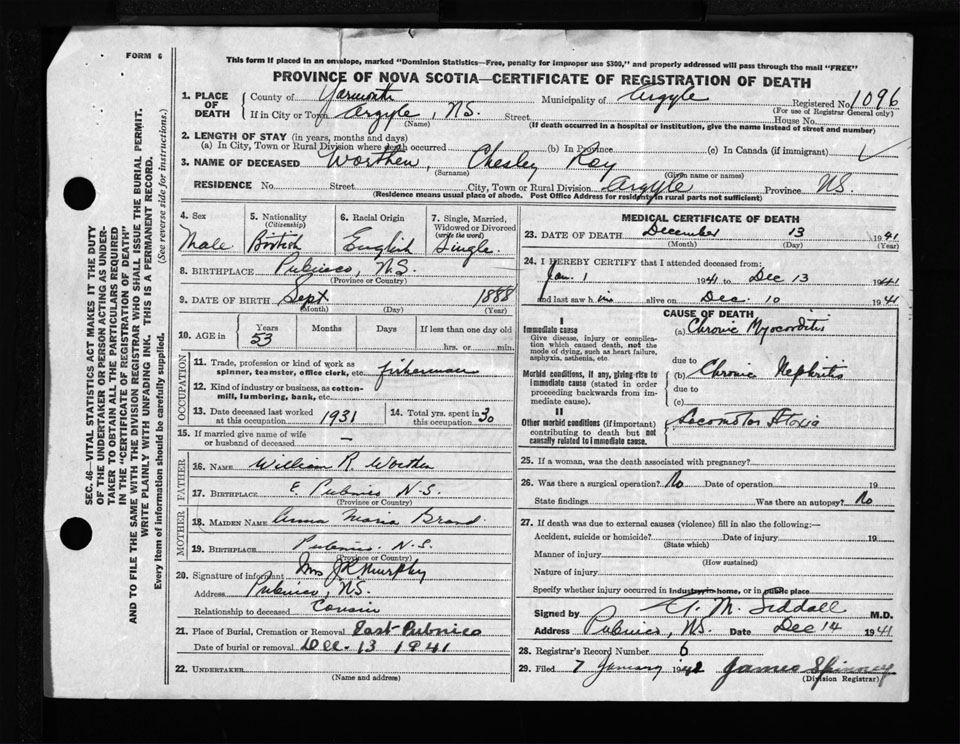 FORM 6
This form if placed in an envelope, marked "Dominion Statistics—Free, penalty for improper use $300," and properly addressed will pass through the mail "FREE"
PROVINCE OF NOVA SCOTIA—CERTIFICATE OF REGISTRATION OF DEATH
SEC. 46—VITAL STATISTICS ACT MAKES IT THE DUTY
OF THE UNDERTAKER OR PERSON ACTING AS UNDER-
TAKER TO OBTAIN ALL THE PARTICULARS REQUIRED
IN THE "CERTIFICATE OF REGISTRATION OF DEATH"
AND TO FILE THE SAME WITH THE DIVISION REGISTRAR WHO SHALL ISSUE THE BURIAL PERMIT.
WRITE PLAINLY WITH UNFADING INK. THIS IS A PERMANENT RECORD.
Every item of information should be carefully supplied. (See reverse side for instructions.)
1. PLACE OF DEATH County of Yarmouth Municipality of Argyle Registered No. 1096
(For use of Registrar General only)
If in City or Town Argyle, N.S. Street House No.
(Name) (If death occurred in a hospital or institution, give the name instead of street and number)
2. LENGTH OF STAY (in years, months and days)
(a) In City, Town or Rural Division where death occurred (b) In Province (c) In Canada (if immigrant) ✓
3. NAME OF DECEASED Worthen, Chesley Roy
(Surname) (Given name or names)
RESIDENCE No. Street City, Town or Rural Division Argyle Province N.S.
(Residence means usual place of abode. Post Office Address for residents in rural parts not sufficient)
4. Sex Male
5. Nationality (Citizenship) British
6. Racial Origin English
7. Single, Married, Widowed or Divorced (write the word) Single
8. BIRTHPLACE Pubnico, N.S.
(Province or Country)
9. DATE OF BIRTH Sept 1888
(Month) (Day) (Year)
10. AGE in Years 53 Months Days If less than one day old
hrs. or min.
OCCUPATION
11. Trade, profession or kind of work as spinner, teamster, office clerk, etc. fisherman
12. Kind of industry or business, as cotton-mill, lumbering, bank, etc.
13. Date deceased last worked at this occupation 1931
14. Total yrs. spent in this occupation 30
15. If married give name of wife or husband of deceased —
FATHER
16. NAME William R. Worthen
17. BIRTHPLACE E. Pubnico N.S.
(Province or Country)
MOTHER
18. MAIDEN NAME Anna Maria Brand
19. BIRTHPLACE Pubnico N.S.
(Province or Country)
20. Signature of informant Mrs J R Murphy
Address Pubnico, N.S.
Relationship to deceased Cousin
21. Place of Burial, Cremation or Removal East Pubnico
Date of burial or removal Dec. 13 1941
22. UNDERTAKER
(Name and address)
MEDICAL CERTIFICATE OF DEATH
23. DATE OF DEATH December 13 1941
(Month) (Day) (Year)
24. I HEREBY CERTIFY that I attended deceased from:
Jan. 1 1941 to Dec 13 1941
and last saw him alive on Dec. 10 1941
CAUSE OF DEATH
I
Immediate cause (a) Chronic Myocarditis
Give disease, injury or complication which caused death, not the mode of dying, such as heart failure, asphyxia, asthenia, etc.
due to
Morbid conditions, if any, giving rise to immediate cause (stated in order proceeding backwards from immediate cause). (b) Chronic Nephritis
due to
(c)
II
Other morbid conditions (if important) contributing to death but not causally related to immediate cause. Locomotor Ataxia
25. If a woman, was the death associated with pregnancy?
26. Was there a surgical operation? No Date of operation 19
State findings Was there an autopsy? No
27. If death was due to external causes (violence) fill in also the following:—
Accident, suicide or homicide? Date of injury 19
(State which)
Manner of injury
(How sustained)
Nature of injury
Specify whether injury occurred in Industry, in home, or in public place
Signed by M. Siddall M.D.
Address Pubnico, N.S. Date Dec 14 1941
28. Registrar's Record Number 6
29. Filed 7 January 1942 James Spinney
(Division Registrar)